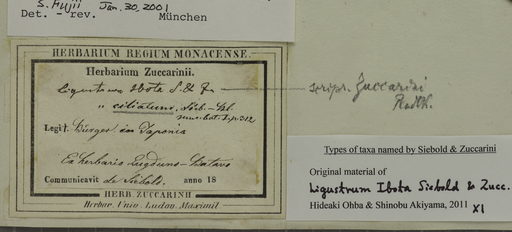 S. Fujii Jan. 30, 2001
Det. - rev. München
HERBARIUM REGIUM MONACENSE.
Herbarium Zuccarinii.
Ligustrum Ibota S. & Z.
" ciliatum, Sieb.
script. Zuccarini
Radlk.
Legit. Bürger. Japonia
Ex herbario Lugduno-Batavo
Communicavit de Siebold. anno 18
HERB. ZUCCARINII
Herbar. Univ. Ludov. Maximil.
Types of taxa named by Siebold & Zuccarini
Original material of
Ligustrum Ibota Siebold & Zucc.
Hideaki Ohba & Shinobu Akiyama, 2011 XI